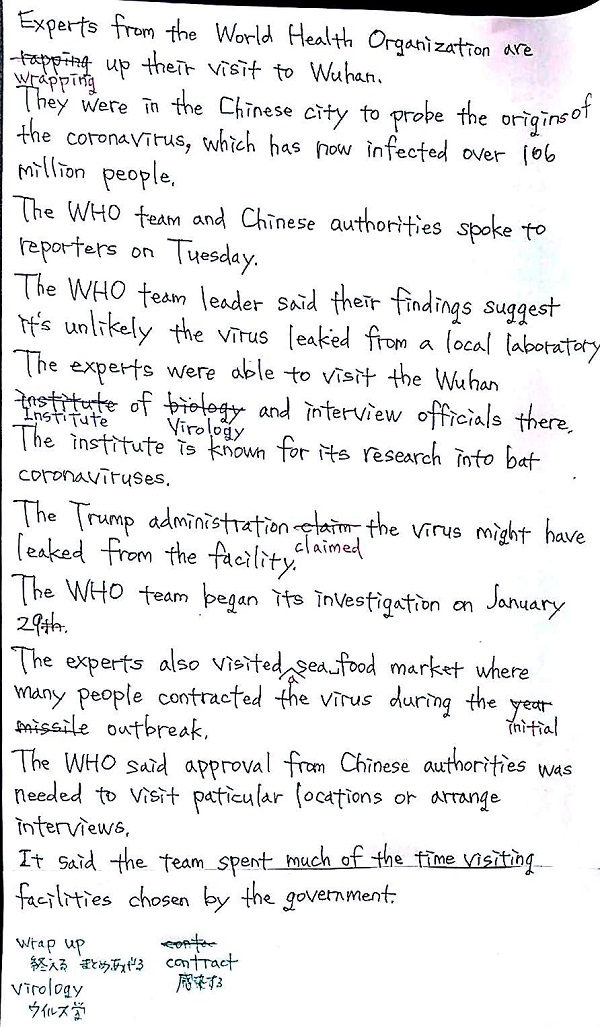 Experts from the World Health Organization are
tapping up their visit to Wuhan.
wrapping
They were in the Chinese city to probe the origins of
the coronavirus, which has now infected over 106
million people.
The WHO team and Chinese authorities spoke to
reporters on Tuesday.
The WHO team leader said their findings suggest
it's unlikely the virus leaked from a local laboratory
The experts were able to visit the Wuhan
institute of biology and interview officials there.
Institute Virology
The institute is known for its research into bat
coronaviruses.
The Trump administration claim the virus might have
claimed
leaked from the facility.
The WHO team began its investigation on January
29th.
The experts also visited sea food market where
a
many people contracted the virus during the year
initial
missile outbreak.
The WHO said approval from Chinese authorities was
needed to visit paticular locations or arrange
interviews.
It said the team spent much of the time visiting
facilities chosen by the government.
wrap up
終える まとめあげる
virology
ウイルス学
contract
感染する